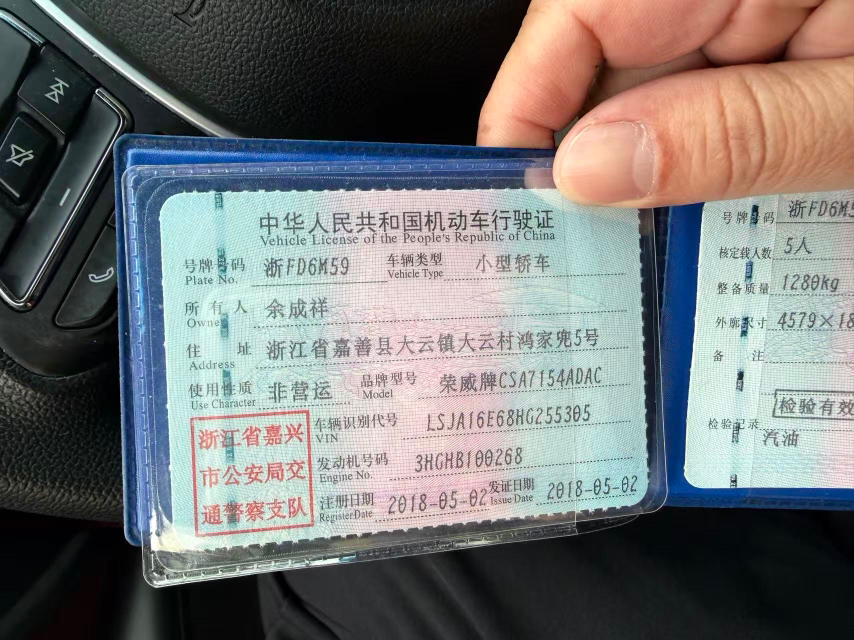 中华人民共和国机动车行驶证
Vehicle License of the People's Republic of China
号牌号码 浙FD6M59 车辆类型 小型轿车
Plate No. Vehicle Type
所有人 余成祥
Owner
住址 浙江省嘉善县大云镇大云村鸿家兜5号
Address
使用性质 非营运 品牌型号 荣威牌CSA7154ADAC
Use Character Model
浙江省嘉兴
市公安局交
通警察支队
车辆识别代号 LSJA16E68HG255305
VIN
发动机号码 3HGHB100268
Engine No.
注册日期 2018-05-02 发证日期 2018-05-02
Register Date Issue Date
号牌号码 浙FD6M5
核定载人数 5人
整备质量 1280kg
外廓尺寸 4579×18
备注
检验有效
检验记录
汽油